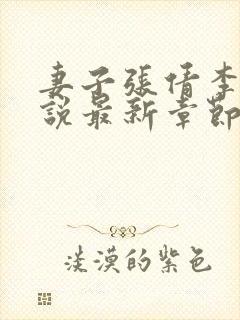 妻子張倩李
説最新章節
淡漠的紫色